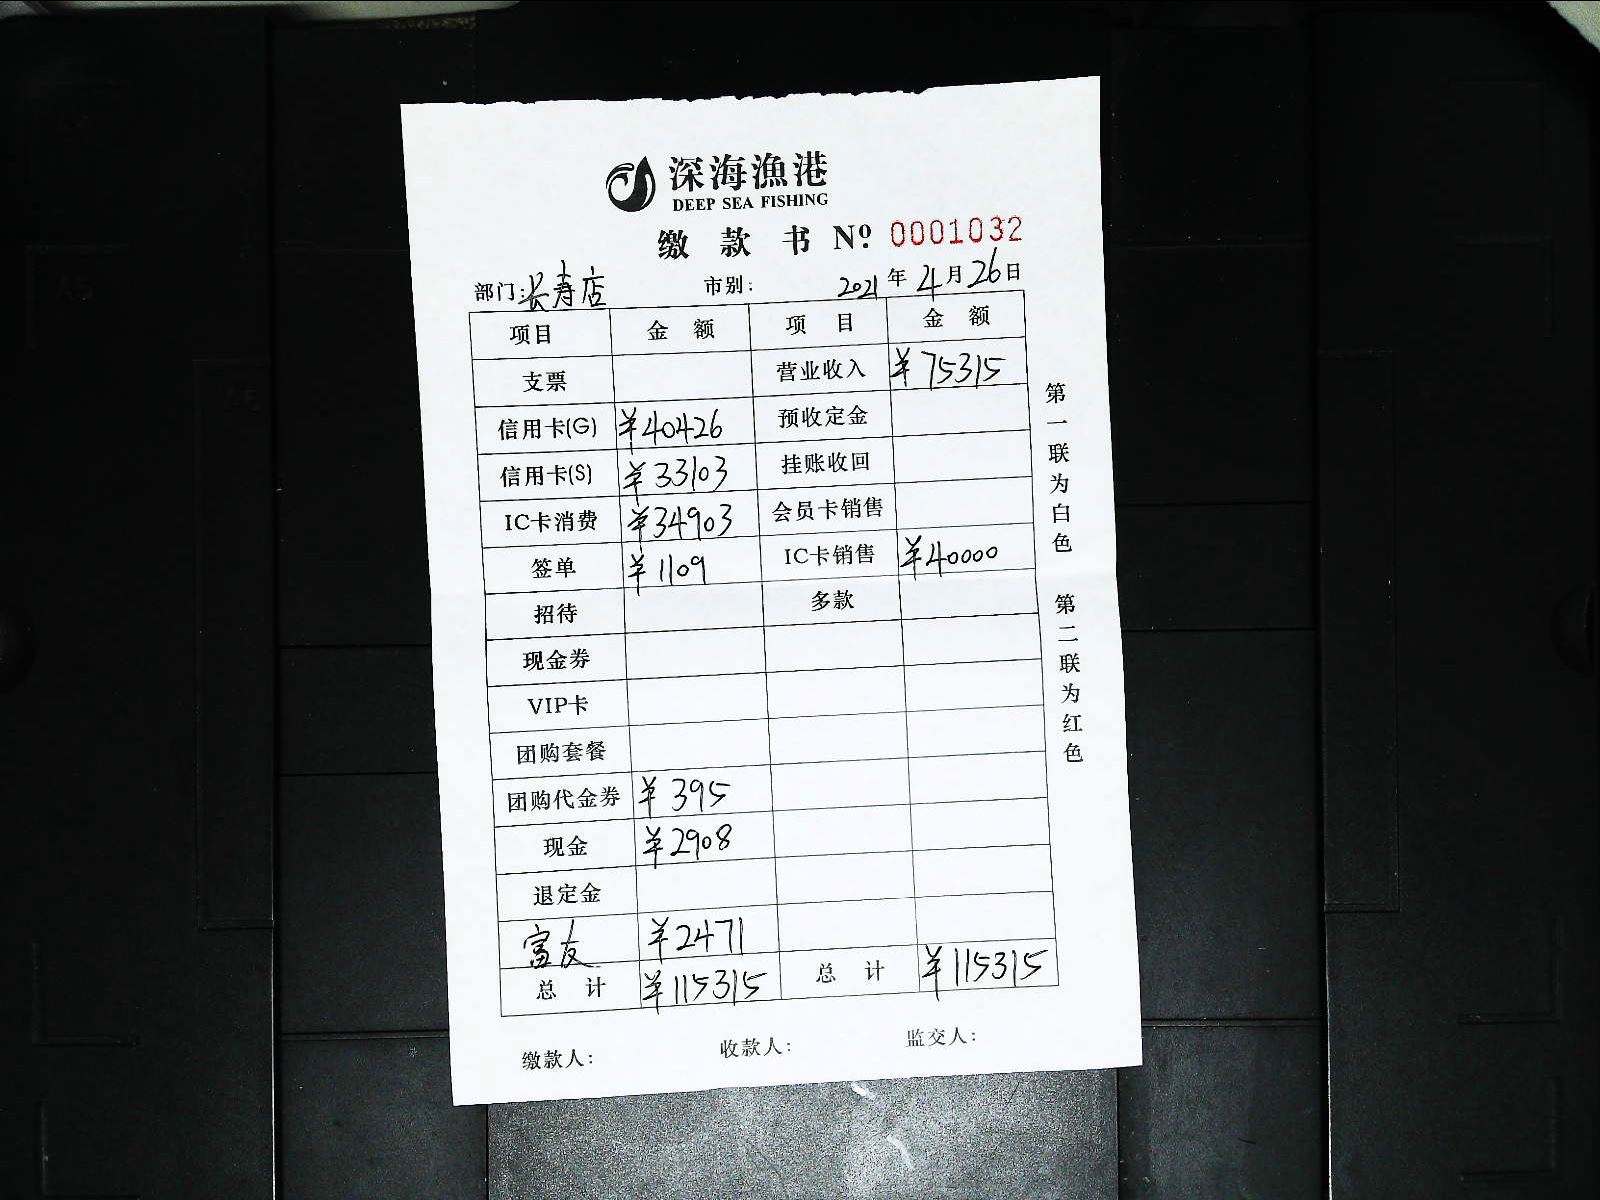 深海渔港
DEEP SEA FISHING
缴 款 书 Nº: 0001032
部门:长寿店 市别: 2021年4月26日
项目 金 额 项 目 金 额
支票 营业收入 ¥75315
信用卡(G) ¥40426 预收定金
信用卡(S) ¥33103 挂账收回
IC卡消费 ¥34903 会员卡销售
签单 ¥1109 IC卡销售 ¥40000
招待 多款
现金券
VIP卡
团购套餐
团购代金券 ¥395
现金 ¥2908
退定金
富友 ¥2471
总 计 ¥115315 总 计 ¥115315
缴款人: 收款人: 监交人:
第一联为白色 第二联为红色